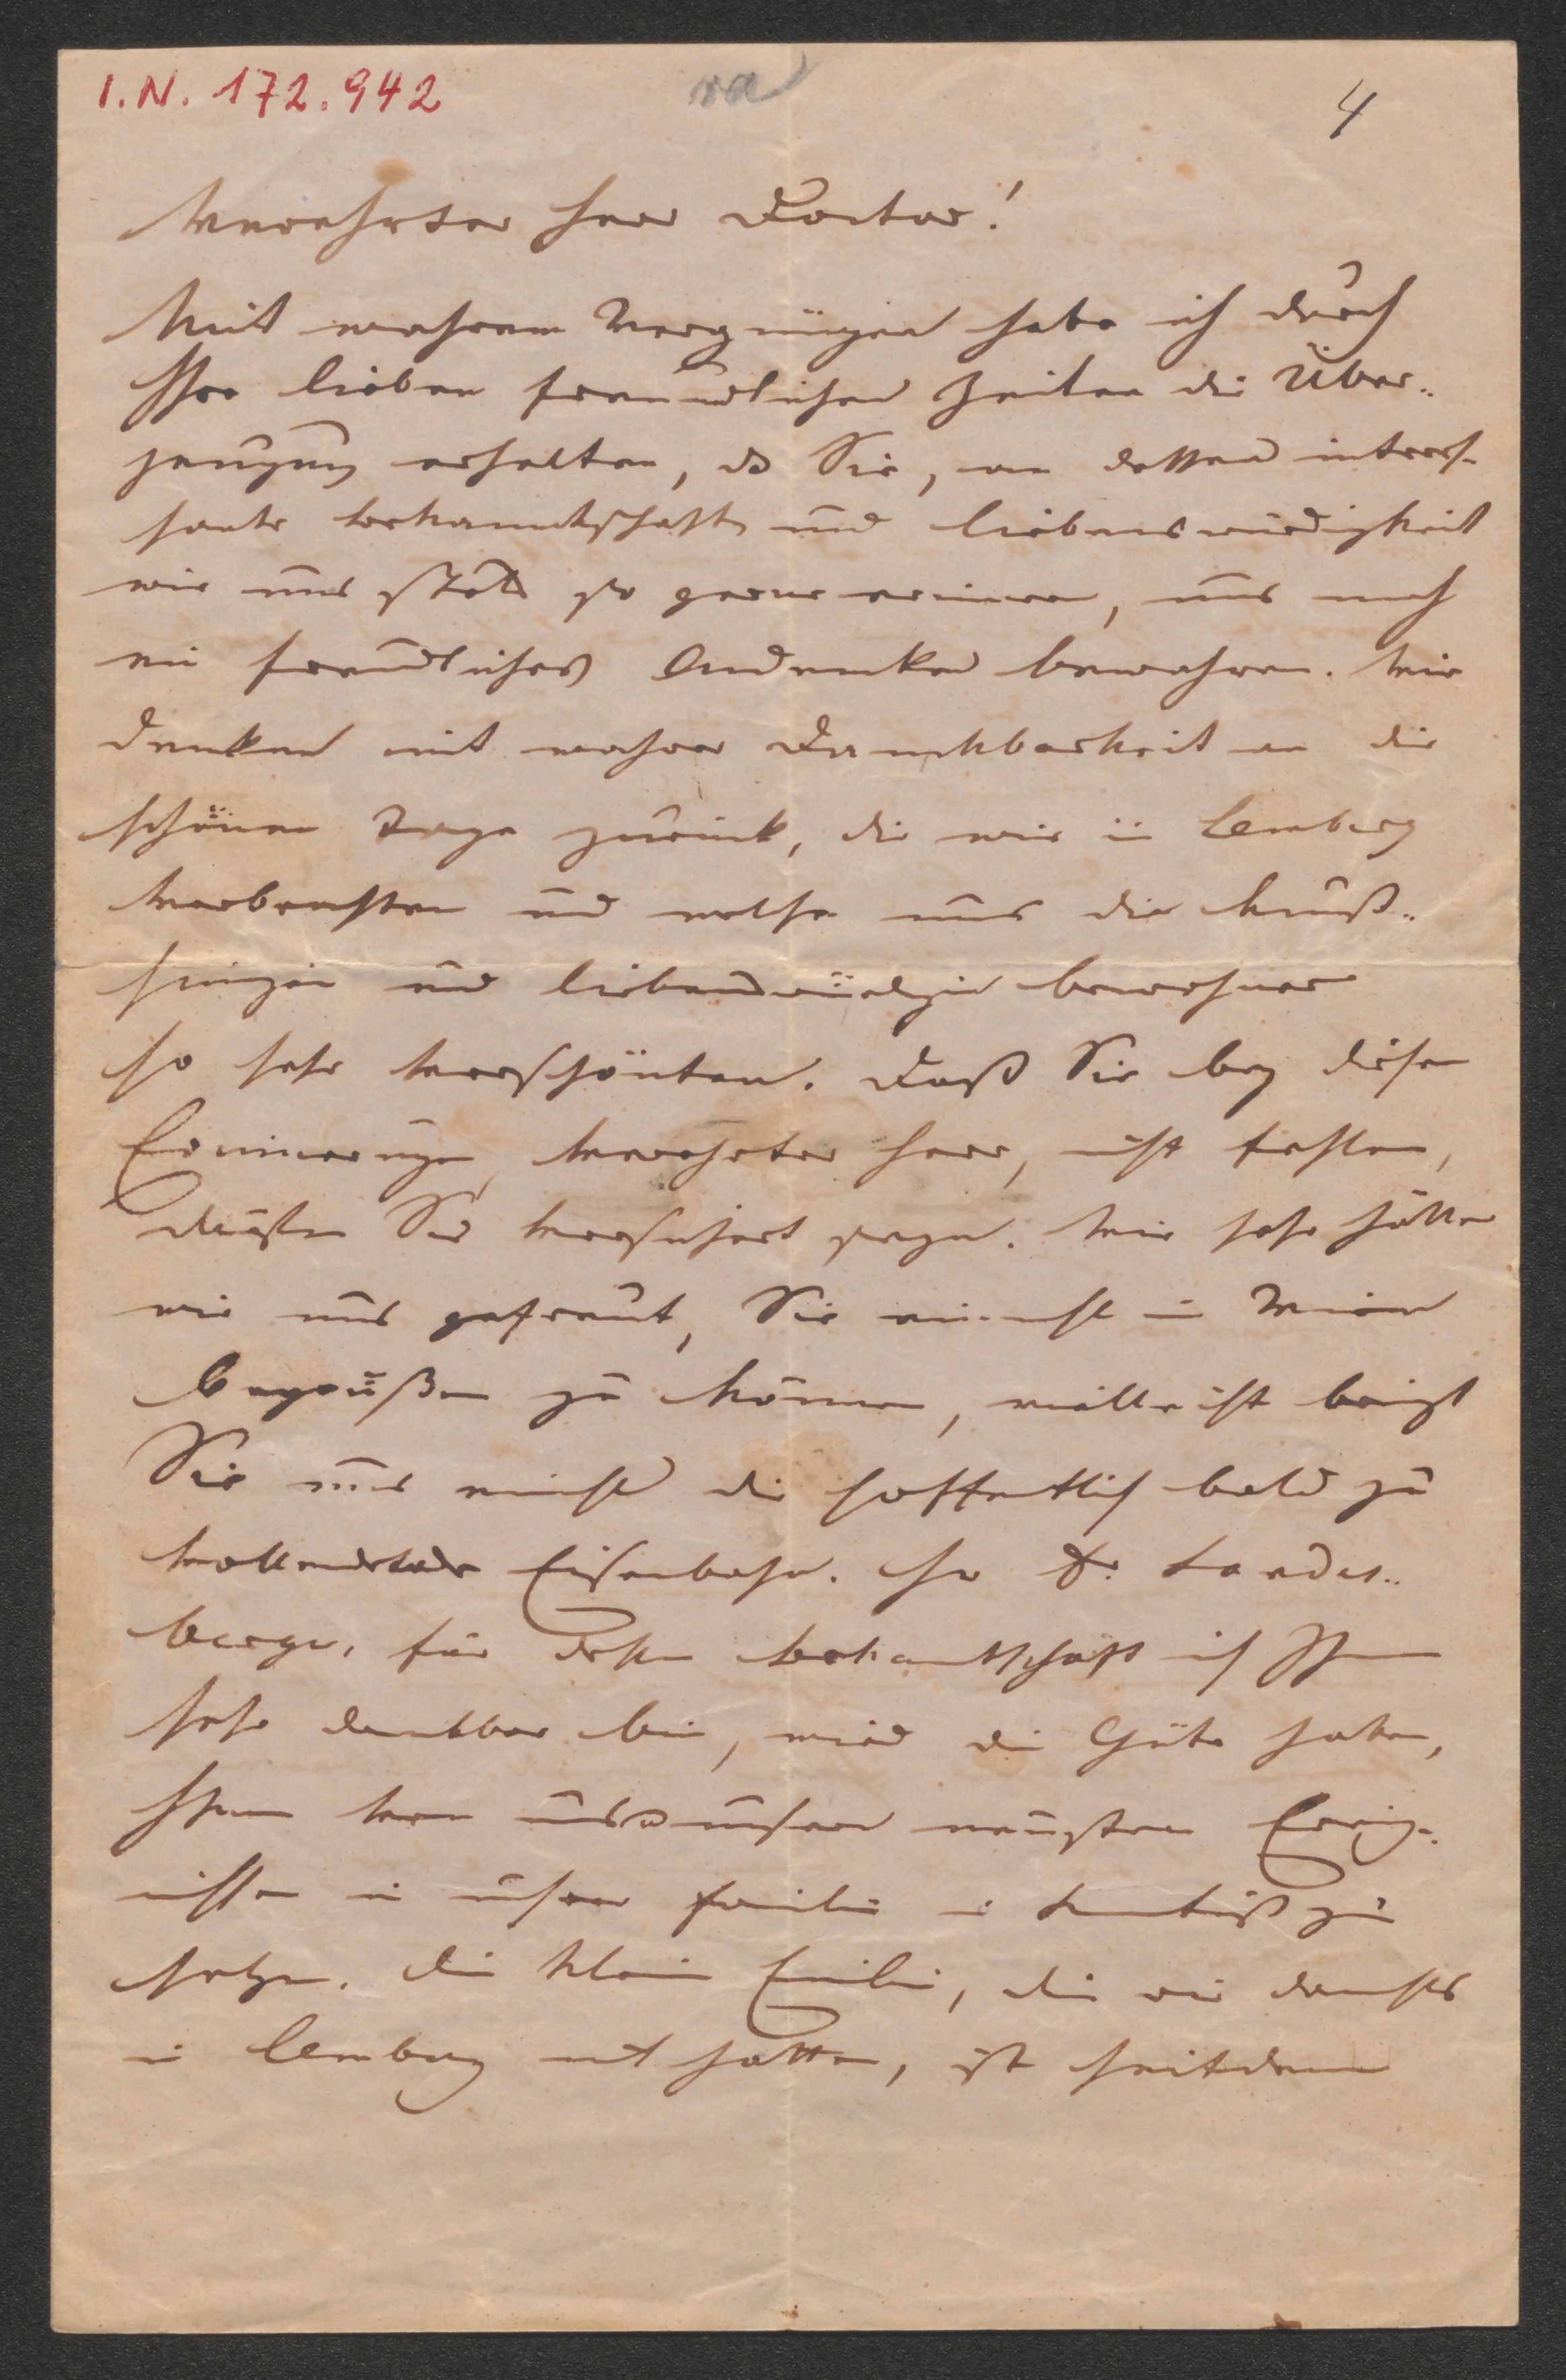 I.N. 172.942
4
Verehrter Herr Doctor!
Mit wahrem Vergnügen habe ich durch
Ihre lieben freundlichen Zeilen die Über..
zeugung erhalten, daß Sie, an dessen intres-
sante Bekanntschaft und Liebenswürdigkeit
wir uns stets so gerne erinnern, uns noch
ein freundliches Andenken bewahren. Wir
denken mit wahrer Danckbarkeit an die
schönen Tage zurück, die wir in Lemberg
verbrachten und welche uns die kunst..
sinnigen und liebenswürdigen Bewohner
so sehr verschönten. Daß Sie bey diesen
Erinnerungen, verehrter Herr, nicht fehlen,
dürfen Sie versichert seyn. Wie sehr hätten
wir uns gefreut, Sie einmahl in Wien
begrüßen zu können, vielleicht bringt
Sie uns einst die hoffentlich bald zu
vollendende Eisenbahn. Hr Dr. Landes..
berger, für dessen Bekanntschaft ich Ihnen
sehr dankbar bin, wird die Güte haben,
Ihnen von unsern neusten Ereig..
nissen in unserer Familie in Kentniß zu
setzen. Die kleine Emilie, die wir damahls
in Lemberg mit hatten, ist seitdem